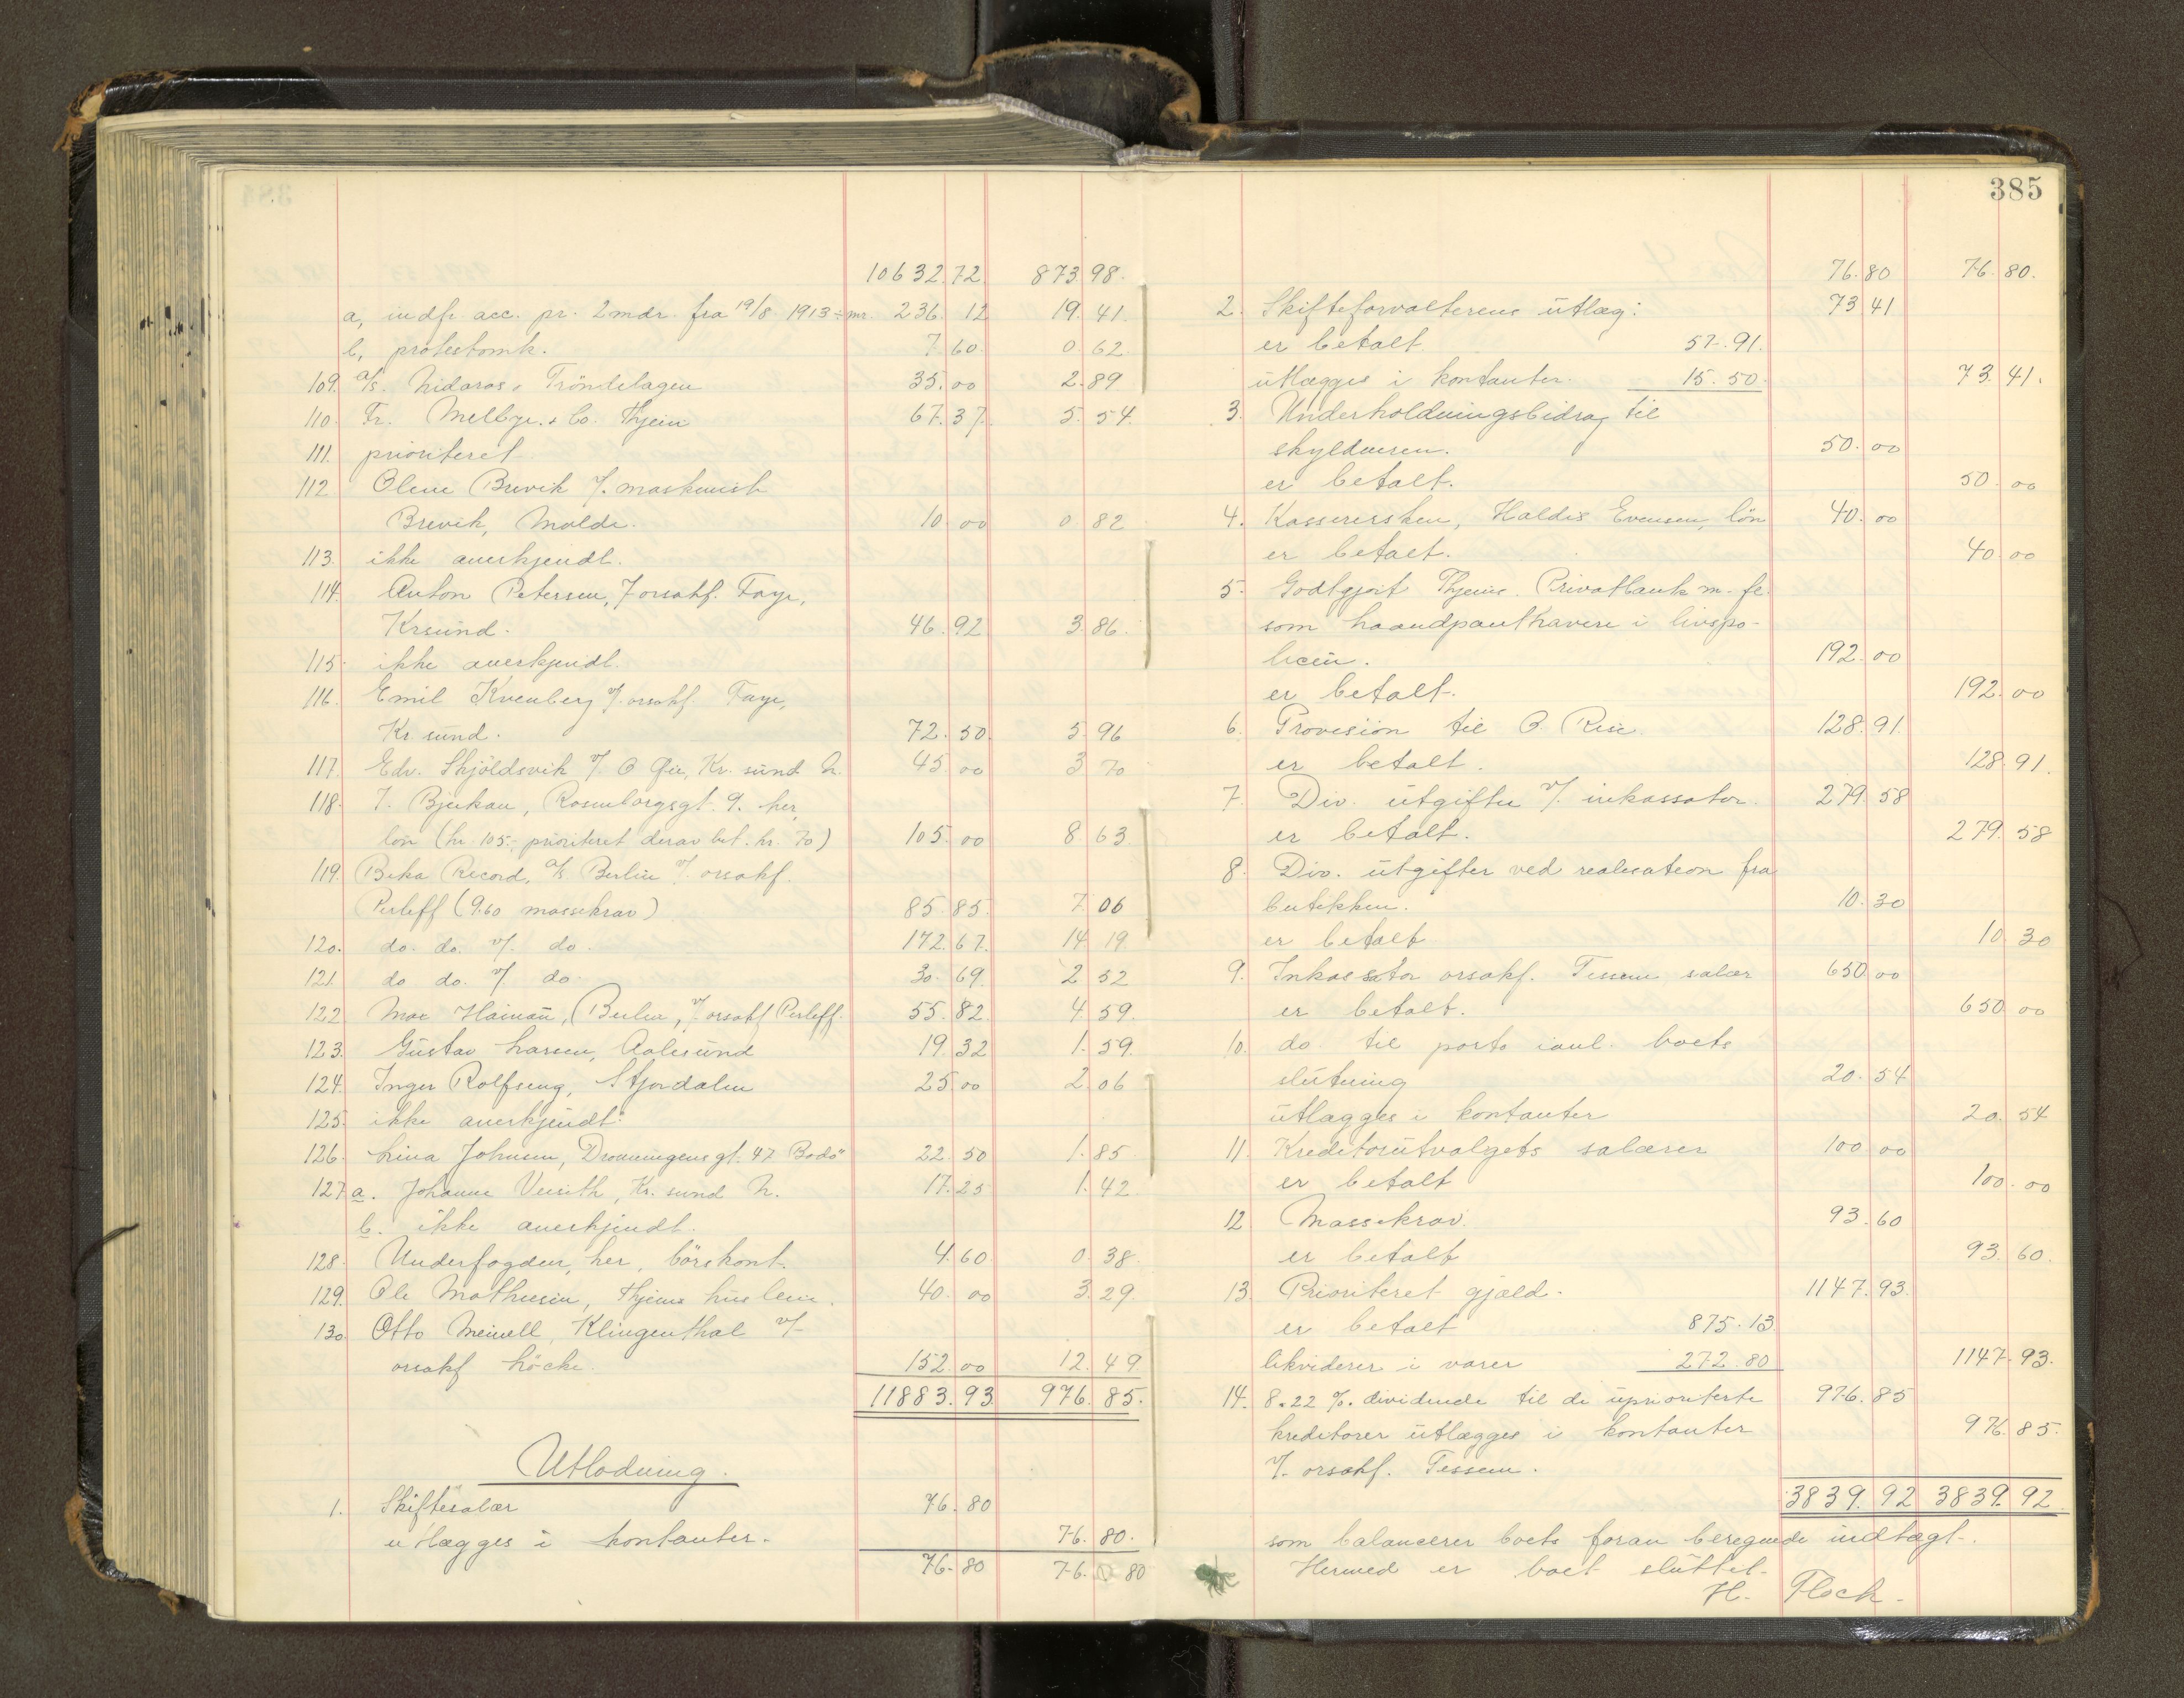 10632.72 873.98.
a, indfr. acc. pr. 2 mdr. fra 19/8 1913 ÷ mr. 236.12 19.41.
b, protestomk. 7.60 0.62.
109. a/s. Nidaros & Tröndelagen 35.00 2.89
110. Fr. Melbye & Co. Thjem 67.37. 5.54.
111. prioriteret.
112 Oline Brevik v/. maskinist
Brevik, Molde. 10 00 0.82
113. ikke anerkjendt.
114. Anton Petersen, v/orsakf. Faye,
Krsund. 46.92 3.86.
115. ikke anerkjendt.
116. Emil Kvenberg v/. orsakf. Faye,
Kr. sund. 72.50. 5.96
117. Edv. Skjöldsvik v/. O. Gie, Kr. sund N. 45 00 3 70
118. J. Bjerkan, Rosenborgsgt. 9. her,
lön (kr. 105.- prioriteret derav bet. kr. 70) 105.00 8.63
119. Beka Record, a/s Berlin v/. orsakf.
Perleff (9.60 massekrav) 85.85. 7.06
120. do. do. v/. do. 172.67. 14.19.
121. do do. v/. do. 30.69. 2 52
122 Max Hainau, Berlin, v/. orsakf Perleff. 55.82. 4.59.
123. Gustav Larsen, Aalesund 19.32 1.59.
124. Inger Rolfseng, Stjordalen 25.00 2.06
125. ikke anerkjendt.
126. Lina Johnsen, Dronningensgt. 47 Bodö 22.50 1.85
127 a. Johanne Vensith, Kr. sund N. 17.25 1.42
b. ikke anerkjendt.
128. Underfogden, her, börskont. 4.60 0.38.
129. Ole Mathisen, Thjems husleie. 40.00 3.29
130 Otto Meinell, Klingenthal v/-
orsakf Löcke. 152.00 12.49
11883.93 976.85.
Utlodning.
1. Skiftesalær 76.80
utlægges i kontanter. 76.80.
76.80 76.80
385
76.80 76.80.
2. Skifteforvalterens utlæg: 73 41
er betalt 57.91.
utlægges i kontanter. 15.50. 73.41.
3. Underholdningsbidrag til
skyldneren. 50.00
er betalt. 50.00
4. Kassererersken, Haldis Evensen, lön 40.00
er betalt. 40 00
5. Godtgjort Thjems. Privatbank m. fl.
som haandpanthavere i livspo-
licen. 192.00
er betalt. 192.00
6. Provision til O. Rise. 128.91.
er betalt. 128.91.
7. Div. utgifter v/. inkassator. 279.58
er betalt. 279.58
8. Div. utgifter ved realisation fra
butikken. 10.30
er betalt 10.30
9. Inkassator orsakf. Tessem salær 650.00
er betalt. 650.00
10. do. til porto ianl. boets
slutning 20.54
utlægges i kontanter 20.54
11. Kreditorutvalgets salærer 100.00
er betalt 100.00
12 Massekrav. 93.60
er betalt 93.60.
13 Prioriteret gjæld. 1147.93.
er betalt 875.13
likviderer i varer 272.80 1147.93.
14. 8.22 %. dividende til de uprioriterte 976.85
kreditorer utlægges i kontanter 976.85.
v/. orsakf. Tessem.
3839.92 3839.92
som balancerer boets foran beregnede indtægt.
Hermed er boet sluttet.
H. Flock.